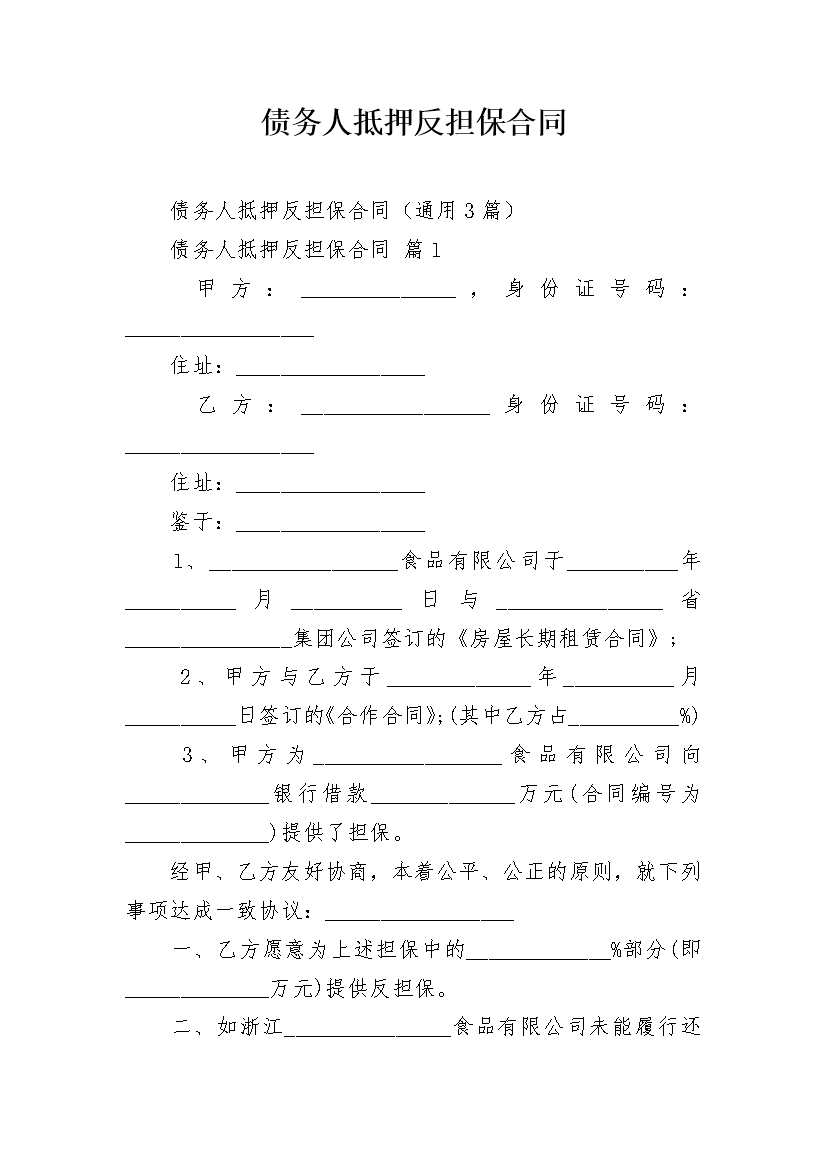 债务人抵押反担保合同
债务人抵押反担保合同（通用3篇）
债务人抵押反担保合同 篇1
甲方：______________，身份证号码：
_________________
住址：_________________
乙方：_________________身份证号码：
_________________
住址：_________________
鉴于：_________________
1、_________________食品有限公司于__________年
__________月__________日与_______________省
_______________集团公司签订的《房屋长期租赁合同》；
2、甲方与乙方于_____________年__________月
__________日签订的《合作合同》；(其中乙方占__________%)
3、甲方为_________________食品有限公司向
_____________银行借款_____________万元(合同编号为
_____________)提供了担保。
经甲、乙方友好协商，本着公平、公正的原则，就下列
事项达成一致协议：_________________
一、乙方愿意为上述担保中的_____________%部分(即
_____________万元)提供反担保。
二、如浙江_______________食品有限公司未能履行还